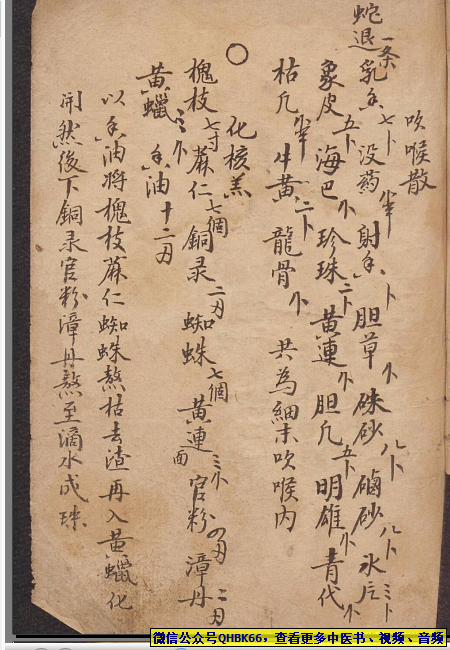 吹喉散
蛇退一条乳香七卜没药射香卜胆草硃砂八卜硇砂八卜氷片三卜
象皮五卜海巴珍珠二卜黄連胆凡五卜明雄青代
枯凡牛黄二卜龍骨共為細末吹喉内
○
化核羔
槐枝七寸蔴仁七個銅彔二刄蜘蛛七個黄連面三官粉四刄漳丹二刄
黄蠟三香油十二刄
以香油將槐枝蔴仁蜘蛛熬枯去渣再入黄蠟化
開然後下銅彔官粉漳丹熬至滴水成珠
微信公众号QHBK66，查看更多中医书、视频、音频